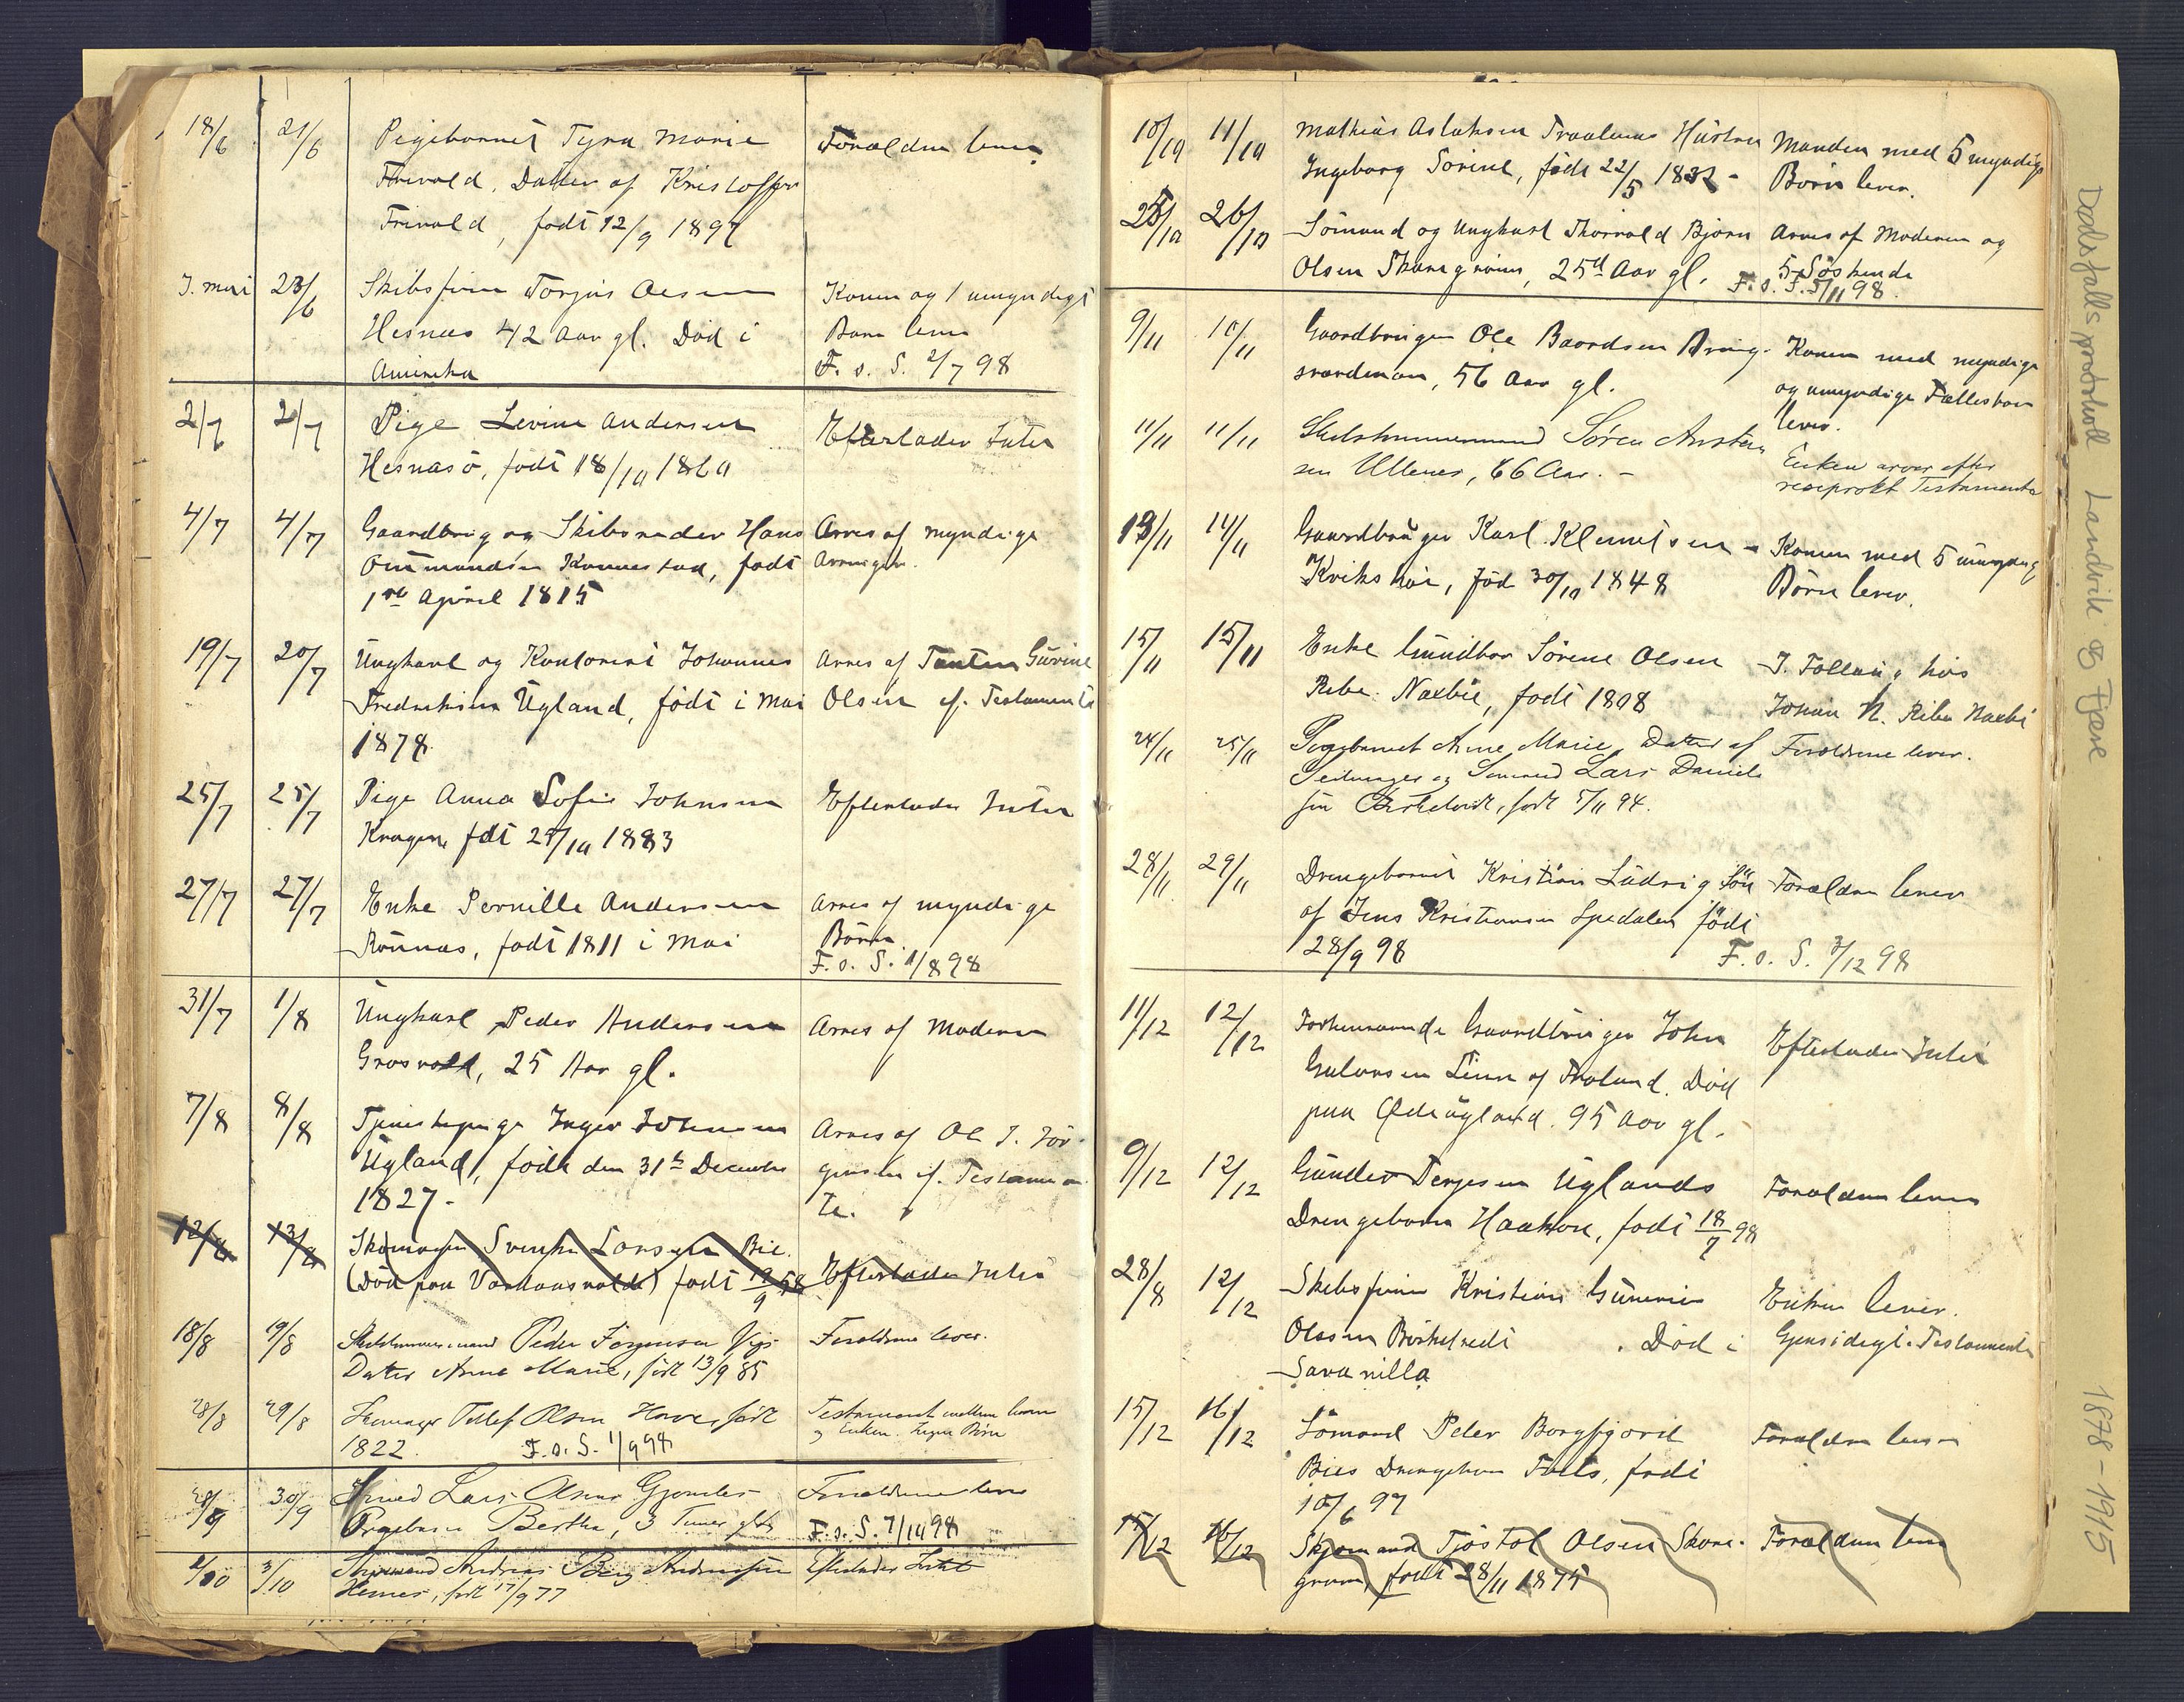 18/6 21/6 Pigebarnet Tyra Marie Forældrene lever
Frivold, Datter af Kristoffer
Frivold, født 12/9 1897
I. mai 23/6 Skibsfører Torjus Olsen Konen og 1 umyndigt
Hesnæs 42 Aar gl. Død i Barn lever
Amerika F. o. S. 2/7 98
2/7 2/7 Pige Levine Andersen Efterlader Intet
Hesnæsø, født 18/10 1860
4/7 4/7 Gaardbrug og Skibsreder Hans Arves af myndige
Konnestad, født Arvinger.
1ste April 1815
19/7 20/7 Ungkarl og Kontorist Johannes Arves af Tanten Gurine
Fredriksen Ugland, født i Mai Olsen ef. Testamente
1878.
25/7 25/7 Pige Anna Sofie Johnsen Efterlader Intet
Kragen, født 29/10 1883
27/7 27/7 Enke Pernille Andersen Arves af myndige
Rønnes, født 1811 i Mai Børn.
F. o. S. 1/8 98
31/7 1/8 Ungkarl Peder Andersen Arves af Moderen
Grosvold, 25 Aar gl.
7/8 8/8 Tjenestepige Inger Johnsen Arves af Ole J. Jør-
Ugland, født den 31te December gensen ef. Testamen-
1827. te.
12/8 13/8 Skomager Svenke Larsen Bie.
(Død paa Varhausvolde) født 19/9 58 Efterlader Intet
18/8 19/8 Skibstømmermand Peder Jørgensen Vigs Forældrene lever.
Datter Anne Marie, født 13/9 85
28/8 29/8 Tellef Olsen Hove, født Testament mellem ham
1822. F. o. S. 1/9 98 og Enken. Ingen Børn
28/9 30/9 Lars Olsen Gjømles Forældrene lever
Pigebarn Bertha, 3 Timer gl. F. o. S. 7/10 98
2/10 3/10 Andreas Berg Andersen Efterlader Intet
født 17/9 77
10/10 11/10 Mathias Aslaksen Traalnes Hustru Manden med 5 myndige
Ingeborg Sorine, født 22/5 1832 - Børn lever.
25/10 26/10 Sømand og Ungkarl Thorvald Bjørn Arves af Moderen og
Olsen Skaregrøm, 25 Aar gl. 5 Søskende
F. o. S. 5/11 98.
9/11 10/11 Gaardbruger Ole Baardsen Dring- Konen med myndige
sværdmoen, 56 Aar gl. og umyndige Fællesbarn
lever.
11/11 11/11 Skibstømmermand Søren Austen-
sen Ullenes, 66 Aar. - Enken arver efter
reciprokt Testamente
13/11 14/11 Gaardbruger Karl Klemetsen - Konen med 5 umyndig
Kvikshei, fød 30/10 1848 Børn lever.
15/11 15/11 Enke Gundbor Sørine Olsen I. Føderaad hos
Ribe. Næbbe, født 1808 Johan N. Ribe Næbbe
24/11 25/11 Pigebarnet Anne Marie, Datter af Forældrene lever.
og Sømand Lars Daniel-
sen Birketveit, født 5/11 94.
28/11 29/11 Drengebarnet Kristian Ludvig Søn Forældrene lever
af Jens Kristiansen Spedalen født
28/9 98 F. o. S. 3/12 98
11/12 12/12 Forhenværende Gaardbruger John Efterlader Intet
Gulovsen Lien af Froland. Død
paa Ødeugland. 95 Aar gl.
9/12 12/12 Gunder Terjesen Uglands Forældrene lever
Drengebarn Haakon, født 18/7 98
28/8 12/12 Skibsfører Kristian Gunerius Enken lever.
Olsen Birketvedt. Død i Gjensidigt Testamente
Savanilla
15/12 16/12 Sømand Peder Borgfjord Forældrene lever
Bies Drengebarn Tæls, født
10/6 97
15/12 16/12 Sjømand Tjøstol Olsen Skare- Forældrene lever
grøm, født 28/11 1875
Dødsfallsprotokoll Landvik og Fjære 1878-1915